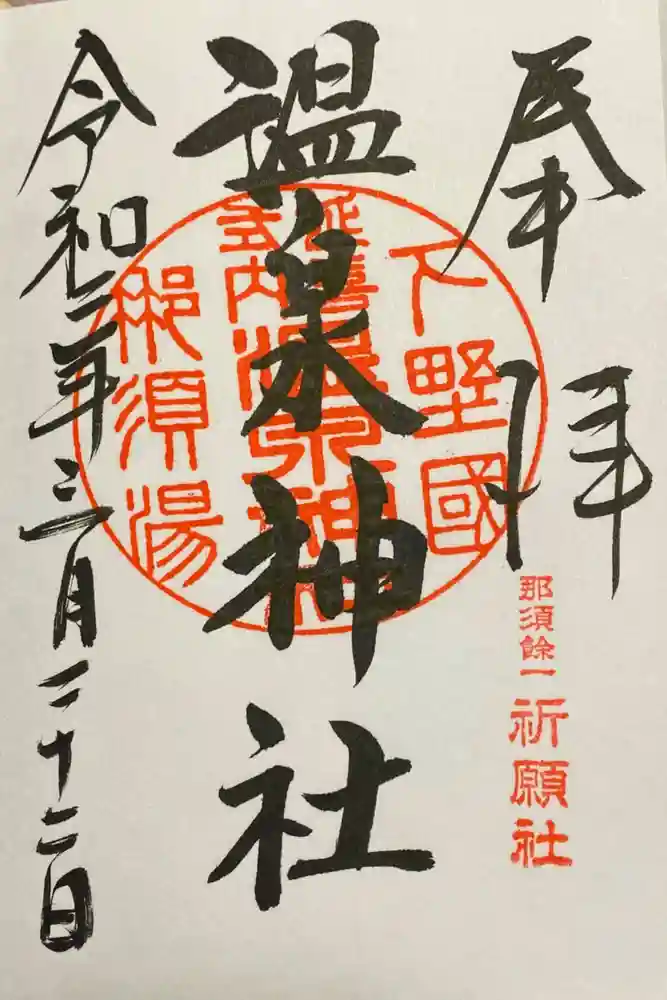 奉拝
那須餘一
祈願社
下野國
延喜
式内
温泉神社
那須湯
温泉神社
令和二年三月二十二日